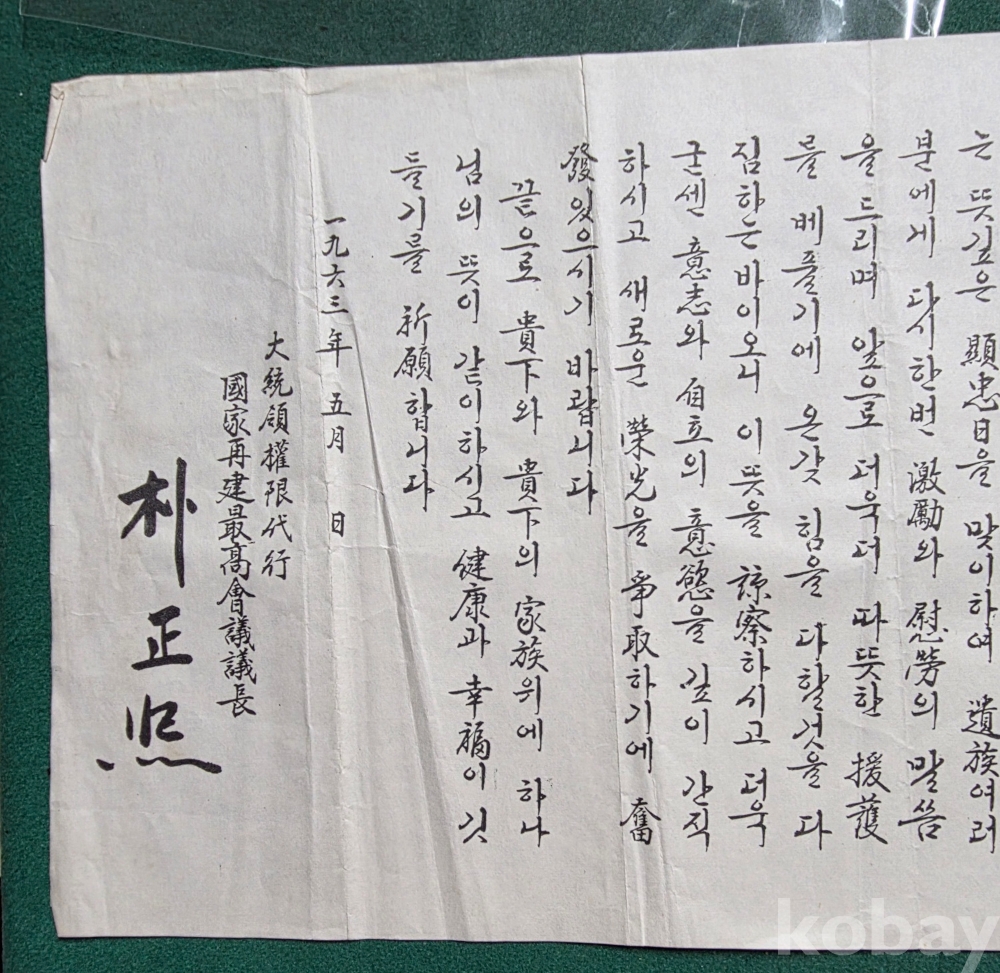 는 뜻깊은 顯忠日을 맞이하여 遺族여러
분에게 다시한번 激勵와 慰勞의 말씀
을 드리며 앞으로 더욱더 따뜻한 援護
를 베풀기에 온갖 힘을 다할것을 다
짐하는바이오니 이뜻을 諒察하시고 더욱
굳센 意志와 自立의 意慾을 깊이 간직
하시고 새로운 榮光을 爭取하기에 奮
發있으시기 바랍니다
끝으로 貴下와 貴下의 家族위에 하나
님의 뜻이 같이하시고 健康과 幸福이 깃
들기를 祈願합니다
一九六三年 五月 日
大統領權限代行
國家再建最高會議議長
朴正熙
kobay